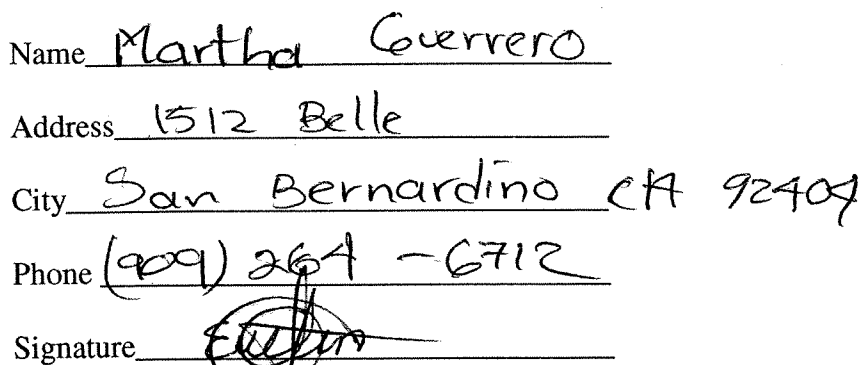 Name Martha Guerrero
Address 1512 Belle
City San Bernardino CA 92404
Phone (909) 264-6712
Signature